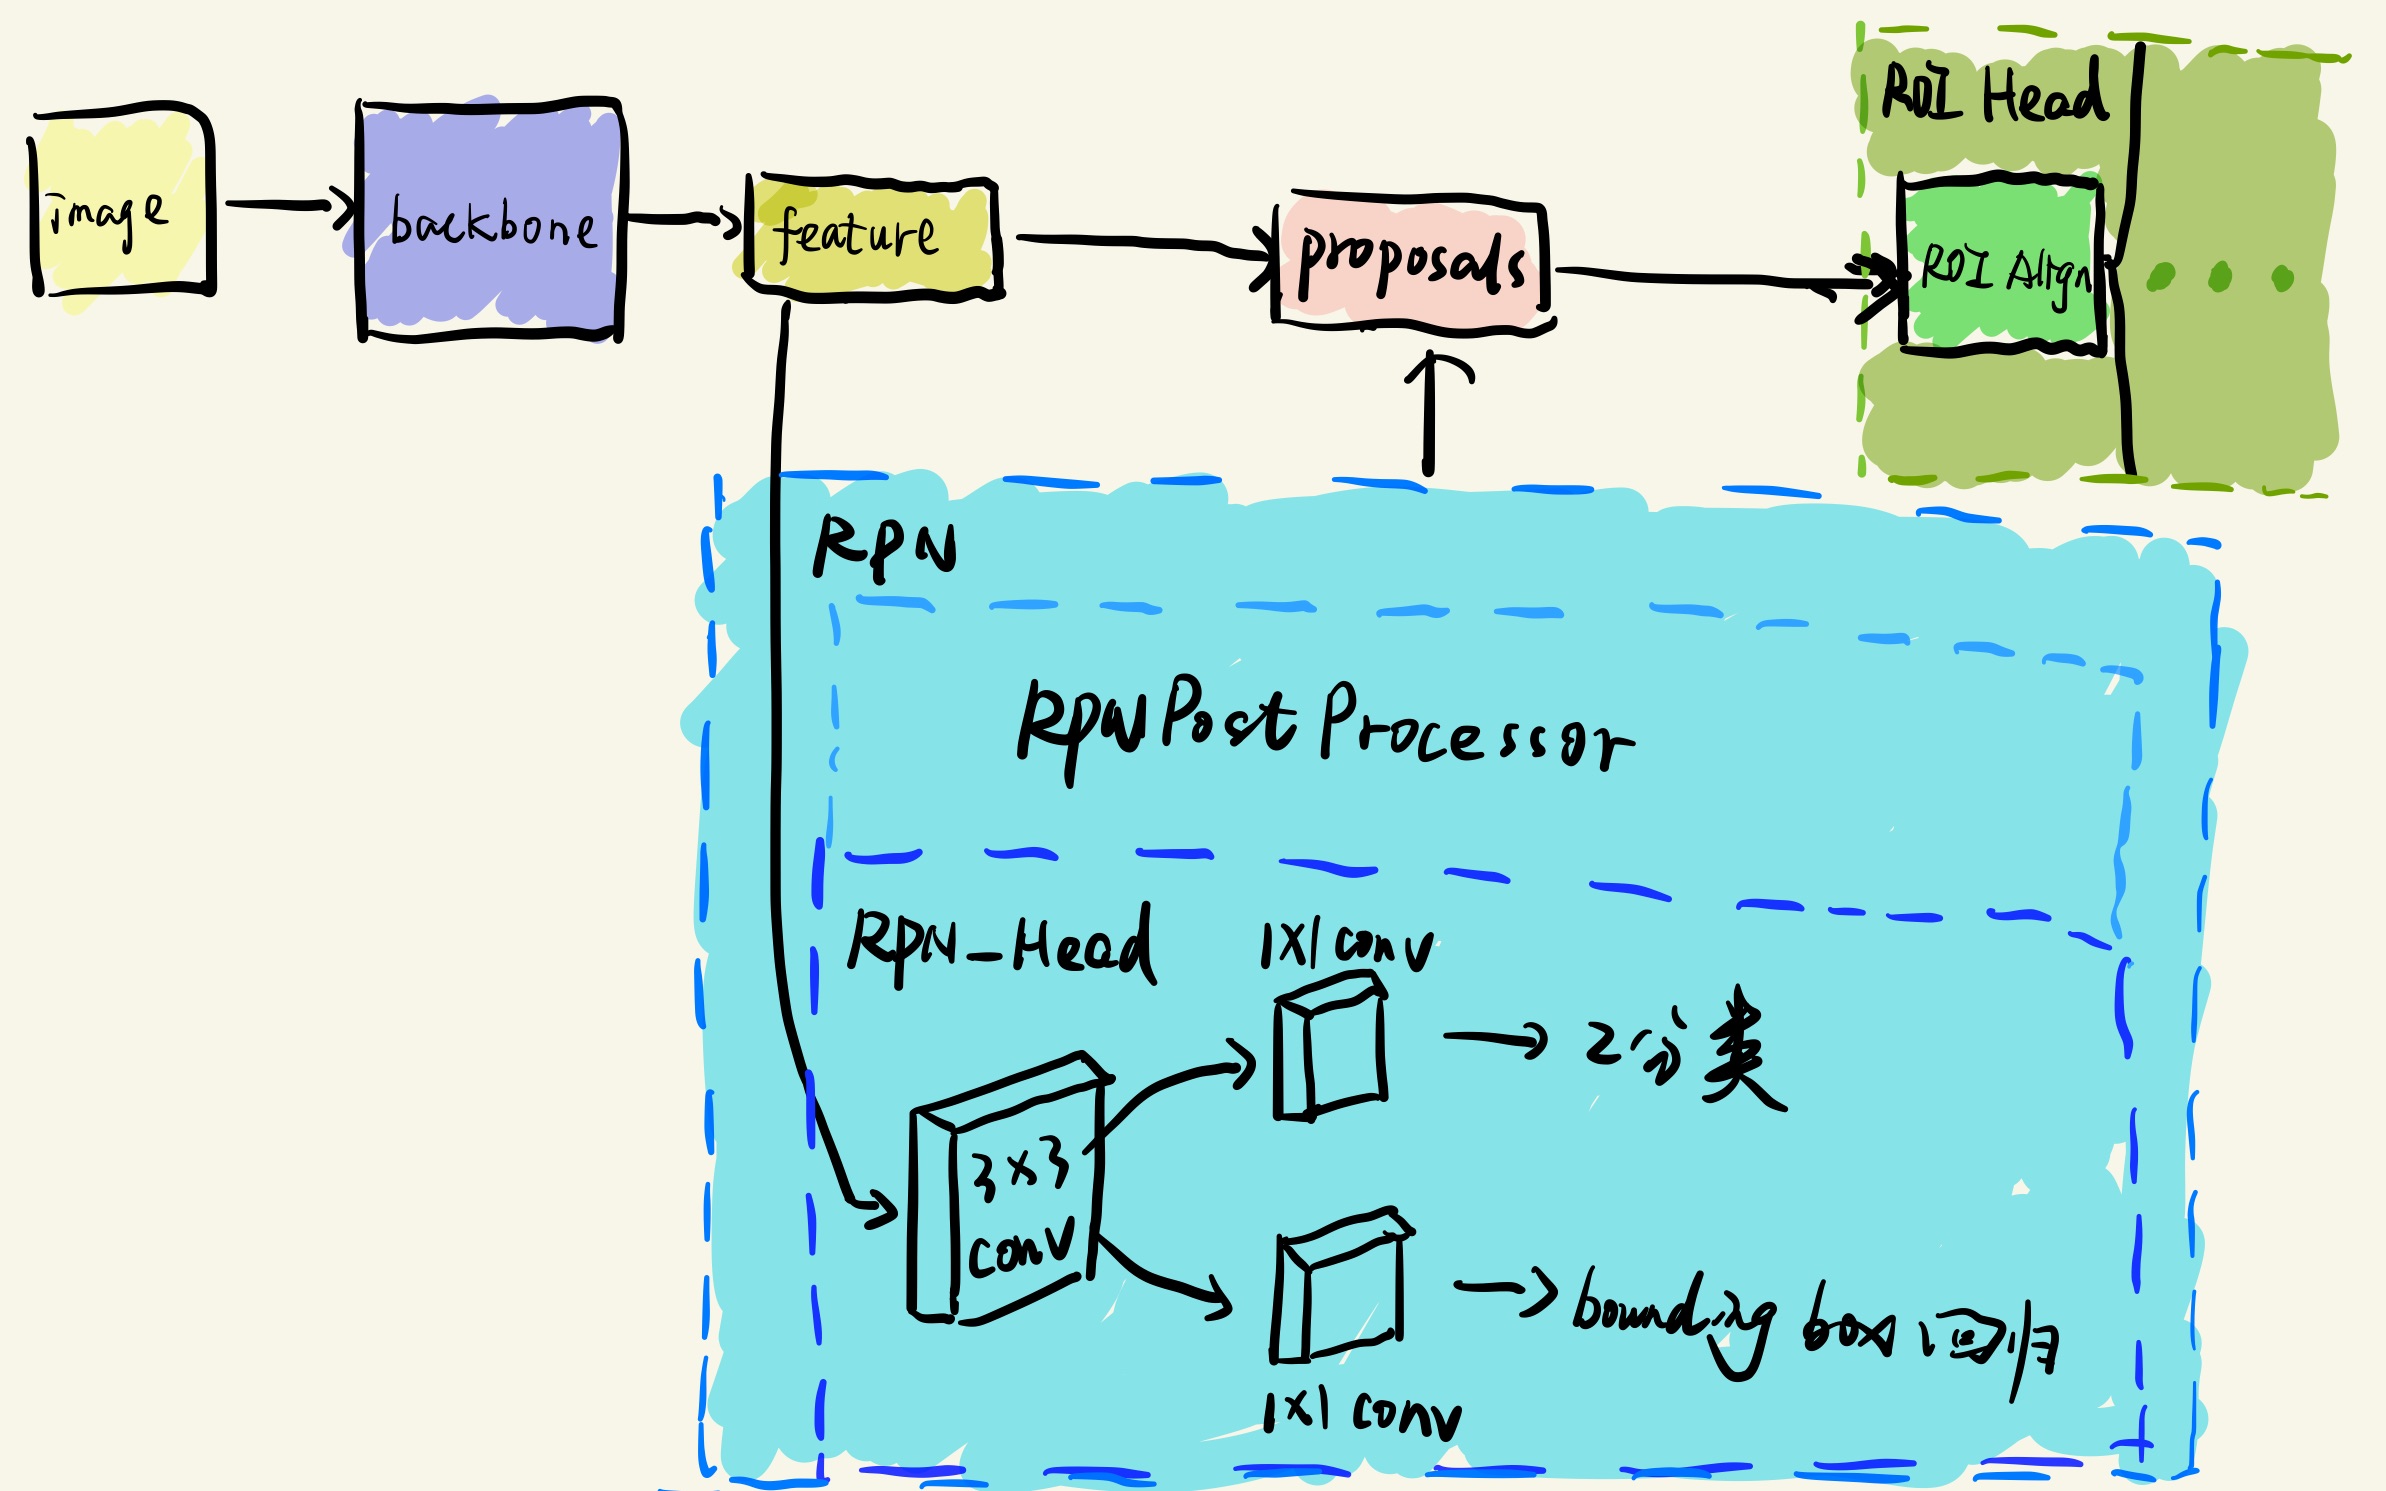 image
backbone
feature
proposals
ROI Head
ROI Align
RPN
RPN Post Processor
RPN_Head
1X1 conv
2分类
3×3
conv
bounding box 回归
1X1 conv